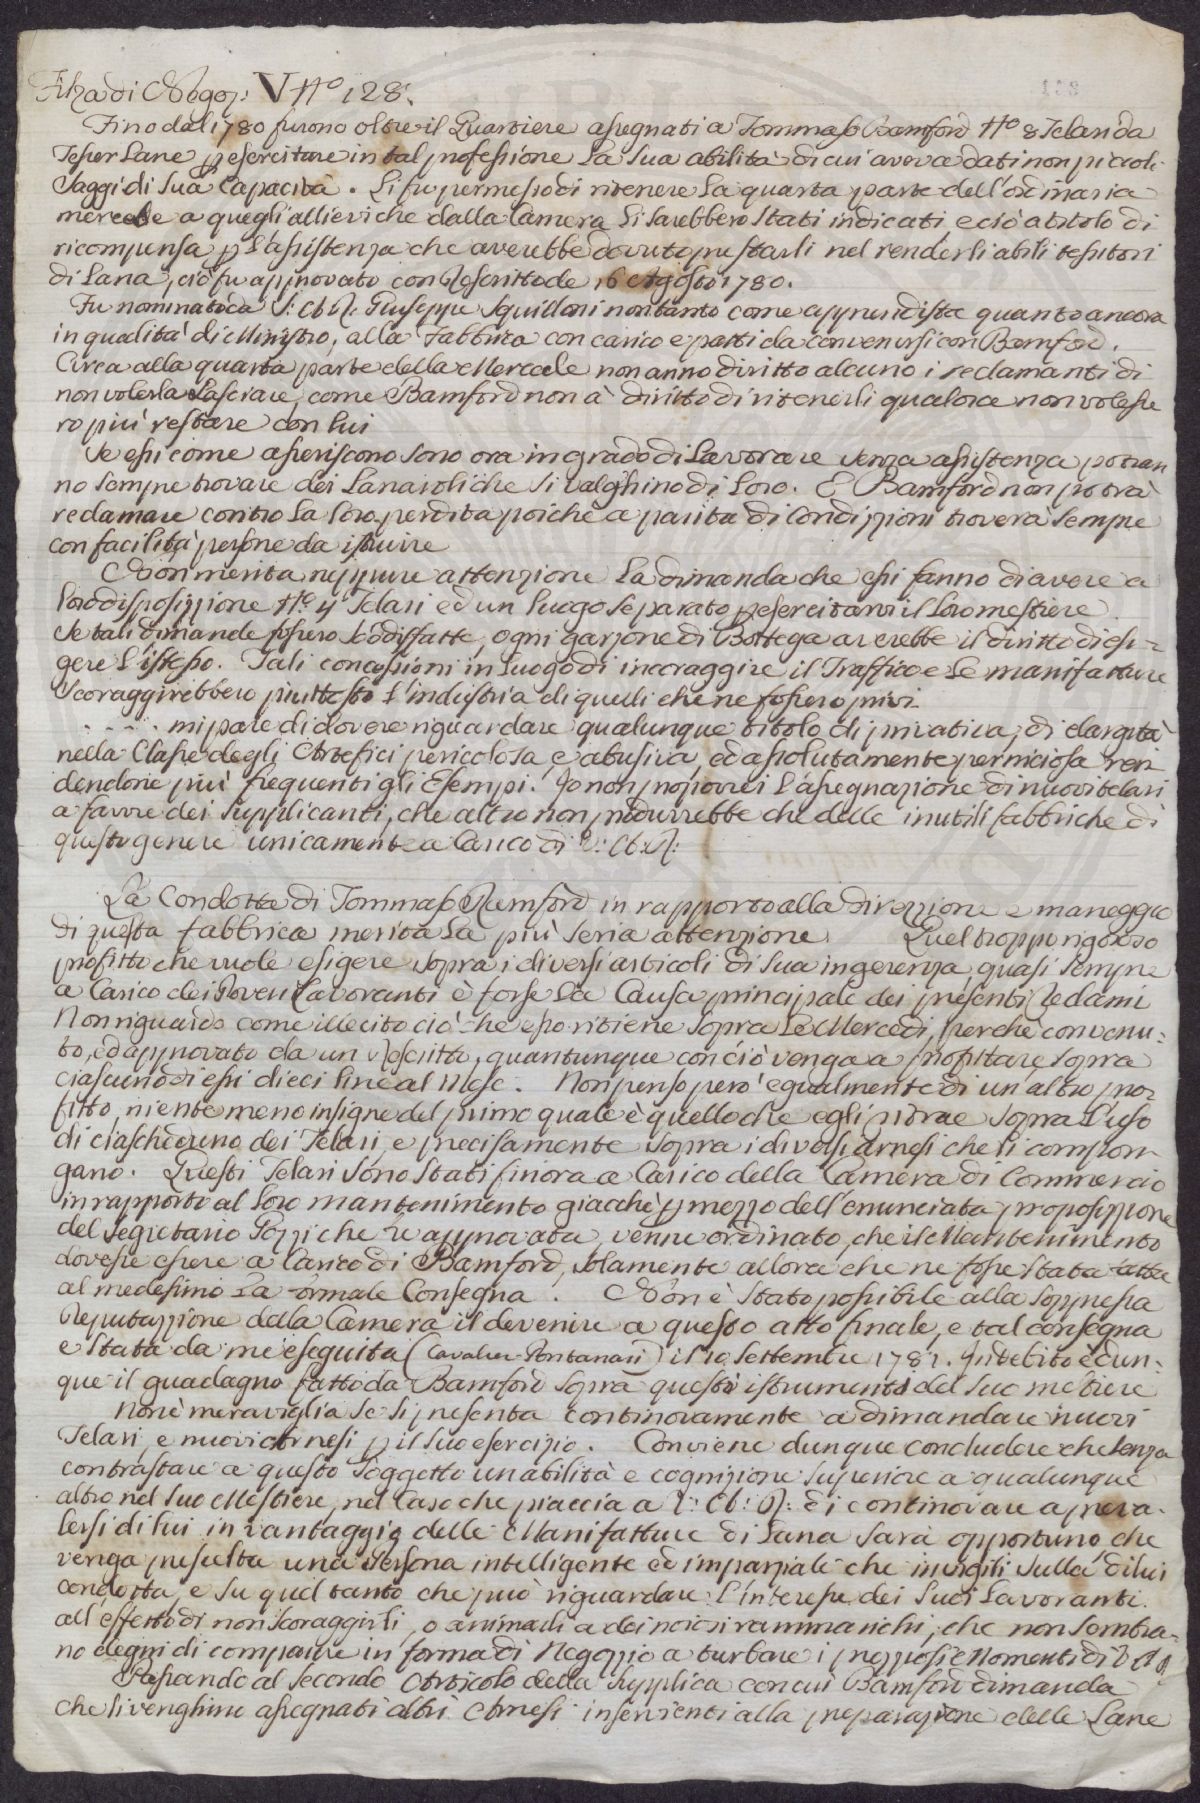 Filza di Negoz: V Nº 128.
Fino dal 1780 furono oltre il Quartiere assegnati a Tommaso Bamford Nº 8 Telari da
Tesser Lane p esercitare in tal professione la sua abilità di cui aveva dati non piccoli
Saggi di sua Capacità. Li fu permesso di ritenere la quarta parte dell'ordinaria
mercede a quegli allievi che dalla Camera li sarebbero stati indicati e ciò a titolo di
ricompensa p l'assistenza che averebbe dovuto prestarli nel renderli abili tessitori
di Lana, ciò fu approvato con Rescritto de 16 Agosto 1780.
Fu nominato da V: A: R: Giuseppe Squilloni non tanto come apprendista quanto ancora
in qualità di Ministro, alla Fabbrica con carico e patti da convenirsi con Bamford.
Circa alla quarta parte della Mercede non anno diritto alcuno i reclamanti di
non volerla lasciare, come Bamford non à diritto di ritenerli qualora non volesse
ro più restare con lui
Se essi come asseriscono sono ora in grado di Lavorare senza assistenza potran
no sempre trovare dei Lanaioli che si valghino di loro. E Bamford non potrà
reclamare contro la loro perdita poiche a parità di Condizzioni troverà sempre
con facilità persone da istruire
Non merita neppure attenzione la dimanda che essi fanno di avere a
loro disposizzione Nº 4 Telari ed un luogo separato p esercitarvi il loro mestiere
Se tali dimande fossero sodisfatte, ogni garzone di Bottega averebbe il diritto di esi-
gere l'istesso. Tali concessioni in luogo di incoraggire il Traffico e le manifatture
Scoraggirebbero piuttosto l'industria di quelli che ne fossero privi
. . . . . mi pare di dovere riguardare qualunque titolo di privativa, di elargità
nella Classe degli Artefici pericolosa, e abusiva, ed assolutamente perniciosa ren
dendone più frequenti gli Esempi. Io non proporrei l'assegnazione di nuovi telari
a favore dei Supplicanti, che altro non produrrebbe che delle inutili fabbriche di
questo genere unicamente a Carico di V: A: R:
La Condotta di Tommaso Bamford in rapporto alla direzzione e maneggio
di questa fabbrica merita la più seria attenzione. Quel troppo rigoroso
profitto che vuole esigere sopra i diversi articoli di sua ingerenza quasi sempre
a Carico dei Poveri Lavoranti è forse la Causa principale dei presenti Reclami
Non riguardo come illecito ciò che esso ritiene sopra le Mercedi, perche convenu-
to, ed approvato da un Rescritto, quantunque con ciò venga a profittare sopra
ciascuno di essi dieci lire al Mese. Non penso però egualmente di un'altro pro-
fitto, niente meno insigne del primo quale è quello che egli ritrae sopra l'uso
di ciascheduno dei Telari, e precisamente sopra i diversi arnesi che li compon
gano. Questi Telari sono stati finora a Carico della Camera di Commercio
in rapporto al loro mantenimento giacchè p mezzo dell'enunciata proposizzione
del Segretario Pozzi che fu approvata, venne ordinato, che il Mantenimento
dovesse essere a Carico di Bamford, solamente allora che ne fosse stata fatta
al medesimo la formale Consegna. Non è stato possibile alla soppressa
Deputazzione della Camera il devenire a questo atto finale, e tal consegna
e stata da me eseguita (Cavalier Pontanari) il 10 Settembre 1781. Indebito è dun-
que il guadagno fatto da Bamford sopra questi istrumenti del suo mestiere
Non è meraviglia se si presenta continovamente a dimandare nuovi
Telari, e nuovi arnesi p il suo esercizio. Conviene dunque concludere che senza
contrastare a questo soggetto un abilità e cognizione superiore a qualunque
altro nel suo Mestiere, nel Caso che piaccia a V: A: R: di continovare a preva-
lersi di lui in vantaggio delle Manifatture di Lana sarà opportuno che
venga prescelta una Persona intelligente ed imparziale che invigili sulla di lui
condotta, e su quel tanto che può riguardare l'interesse dei suoi Lavoranti
all'effetto di non scoraggirli, o animarli a dei noiosi rammarichi, che non sembra-
no degni di comparire in forma di Negozio a turbare i preziosi Momenti di V A R
Passando al secondo Articolo della Supplica con cui Bamford dimanda
che li venghino assegnati altri Arnesi inservienti alla preparazione delle Lane